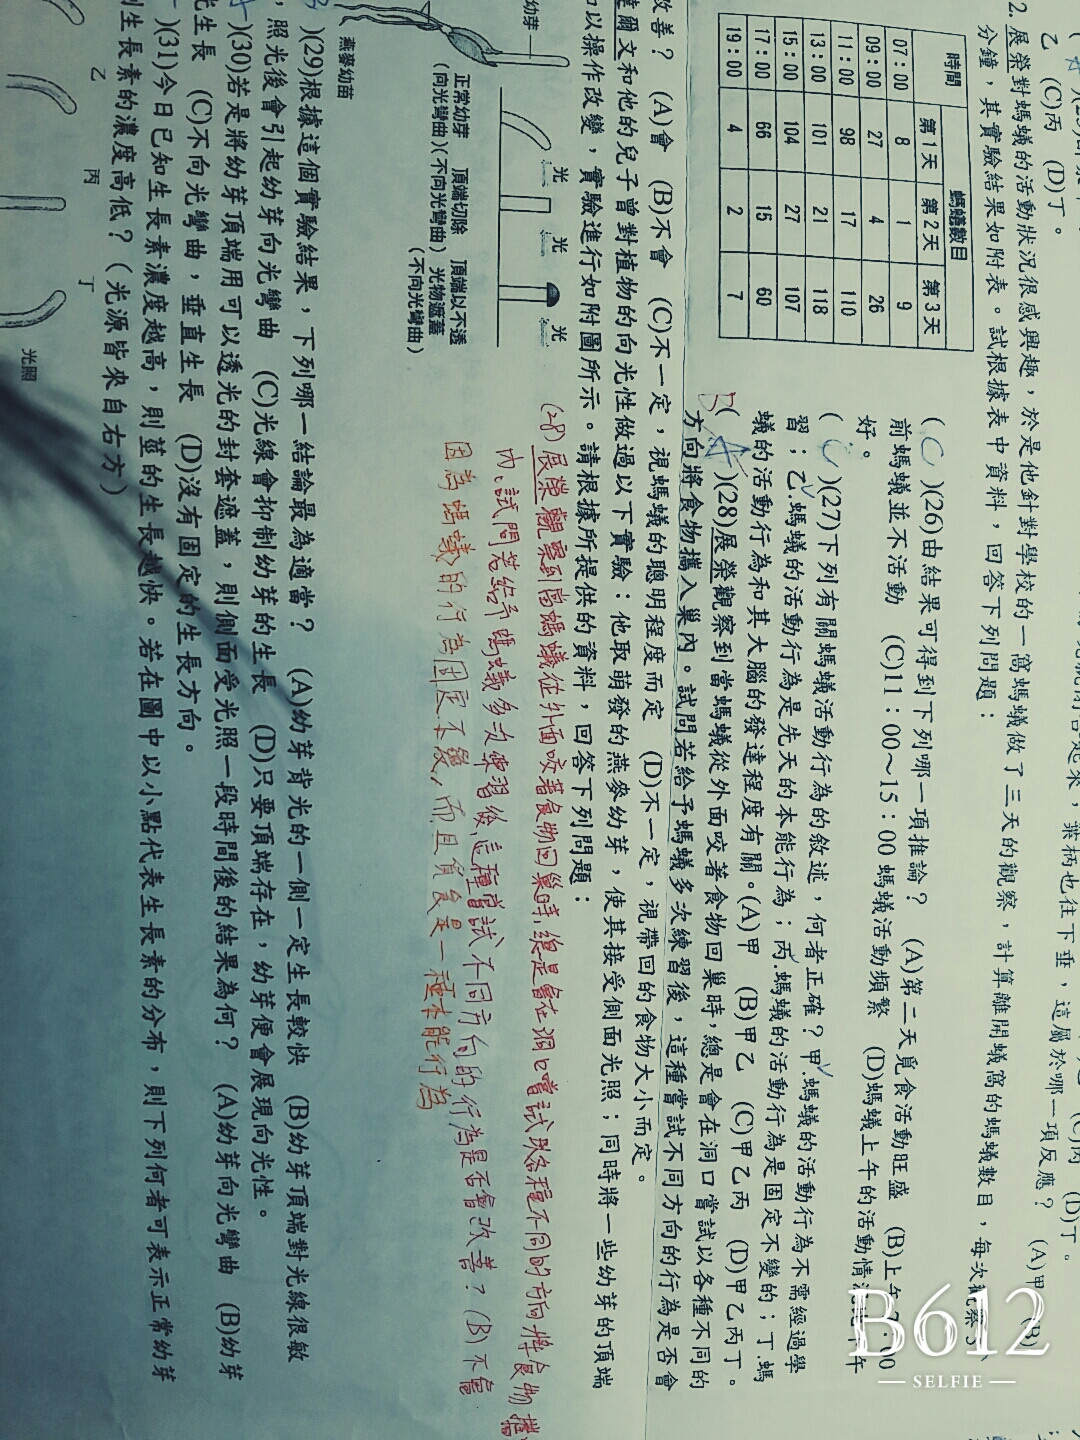 乙 (C)丙 (D)丁。
2. 展榮對螞蟻的活動狀況很感興趣，於是他針對學校的一窩螞蟻做了三天的觀察，計算離開蟻窩的螞蟻數目，每次觀察5
分鐘，其實驗結果如附表。試根據表中資料，回答下列問題：
時間 螞蟻數目
第1天 第2天 第3天
07：00 8 1 9
09：00 27 4 26
11：00 98 17 110
13：00 101 21 118
15：00 104 27 107
17：00 66 15 60
19：00 4 2 7
( C )(26)由結果可得到下列哪一項推論？ (A)第二天覓食活動旺盛 (B)上午7：00
前螞蟻並不活動 (C)11：00～15：00 螞蟻活動頻繁 (D)螞蟻上午的活動情況比下午
好。
( C )(27)下列有關螞蟻活動行為的敘述，何者正確？甲.螞蟻的活動行為不需經過學
習；乙.螞蟻的活動行為是先天的本能行為；丙.螞蟻的活動行為是固定不變的；丁.螞
蟻的活動行為和其大腦的發達程度有關。(A)甲 (B)甲乙 (C)甲乙丙 (D)甲乙丙丁。
B( A )(28)展榮觀察到當螞蟻從外面咬著食物回巢時，總是會在洞口嘗試以各種不同的
方向將食物攜入巢內。試問若給予螞蟻多次練習後，這種嘗試不同方向的行為是否會
改善？ (A)會 (B)不會 (C)不一定，視螞蟻的聰明程度而定 (D)不一定，視帶回的食物大小而定。
達爾文和他的兒子曾對植物的向光性做過以下實驗：他取萌發的燕麥幼芽，使其接受側面光照；同時將一些幼芽的頂端
加以操作改變，實驗進行如附圖所示。請根據所提供的資料，回答下列問題：
幼芽
燕麥幼苗
光 光 光
正常幼芽 頂端切除 頂端以不透
(向光彎曲)(不向光彎曲) 光物遮蓋
(不向光彎曲)
(28)展榮觀察到當螞蟻從外面咬著食物回巢時,總是會在洞口嘗試以各種不同的方向將食物攜
內、試問若給予螞蟻多次練習後,這種嘗試不同方向的行為是否會改善？(B)不會
因為螞蟻的行為固定不變,而且覓食是一種本能行為
)(29)根據這個實驗結果，下列哪一結論最為適當？ (A)幼芽背光的一側一定生長較快 (B)幼芽頂端對光線很敏
，照光後會引起幼芽向光彎曲 (C)光線會抑制幼芽的生長 (D)只要頂端存在，幼芽便會展現向光性。
)(30)若是將幼芽頂端用可以透光的封套遮蓋，則側面受光照一段時間後的結果為何？ (A)幼芽向光彎曲 (B)幼芽
光生長 (C)不向光彎曲，垂直生長 (D)沒有固定的生長方向。
)(31)今日已知生長素濃度越高，則莖的生長越快。若在圖中以小點代表生長素的分布，則下列何者可表示正常幼芽
生長素的濃度高低？（光源皆來自右方）
乙 丙 丁
光照
B612
SELFIE